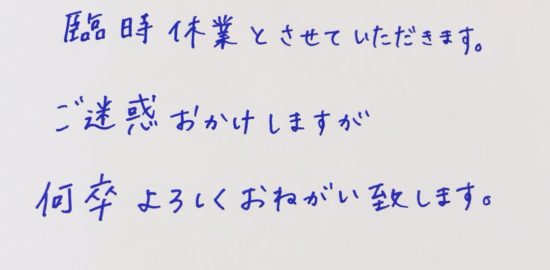 臨時休業とさせていただきます。
ご迷惑おかけしますが
何卒よろしくおねがい致します。